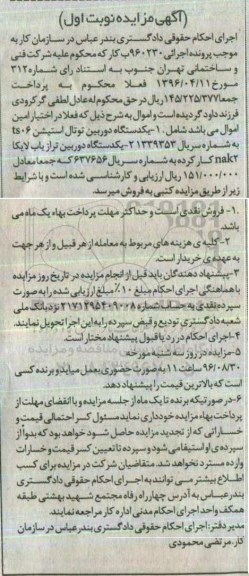 (آگهی مزایده نوبت اول)
اجرای احکام حقوقی دادگستری بندر عباس در سازمان کار به
موجب پرونده اجرائی ۹۶۰۲۳۰ب کار که محکوم علیه شرکت فنی
و ساختمانی تهران جنوب به استناد رای شماره ۳۱۲
مورخ ۱۳۹۶/۰۴/۱۱ فعلا محکوم به پرداخت
جمعا ۱۴۵/۲۲۵/۳۷۷ ریال در حق محکوم له عادل لطفی گرکرودی
فرزند داود گردیده است و اموال به شرح ذیل که فعلا در اختیار امین
اموال می باشد شامل ۱-یکدستگاه دوربین توتال استیشن ts۰۶
به شماره سریال ۱۳۳۹۳۵۳ ۲-یکدستگاه دوربین تراز یاب لایکا
nak۲ کار کرده به شماره سریال ۶۳۷۶۵۶ که جمعا معادل
۱۵۱/۰۰۰/۰۰۰ ریال ارزیابی و کارشناسی شده است و با شرایط
زیر از طریق مزایده کتبی به فروش میرسد.
۱- فروش نقدی است و حداکثر مهلت پرداخت بهاء یک ماه می
باشد.
۲- کلیه ی هزینه های مربوط به معامله از هر قبیل و از هر جهت
به عهده ی خریدار است.
۳-پیشنهاد دهندگان باید قبل از انجام مزایده در تاریخ روز مزایده
با هماهنگی اجرای احکام مبلغ ۱۰٪ مبلغ ارزیابی شده را به صورت
سپرده نقدی به حساب شماره ۲۱۷۱۲۹۵۲۰۹۰۰۸ نزد بانک ملی
شعبه دادگستری تودیع و قبض سپرده را به این اجرا تحویل نمایند.
۴-اجرای احکام در رد یا قبول پیشنهاد مختار است.
۵-مزایده در روز سه شنبه مورخه
۹۶/۰۸/۳۰ ساعت ۱۱ به صورت حضوری بعمل میاید و برنده کسی
است که بالاترین قیمت را پیشنهاد دهد.
۶-در صورتیکه برنده تا یک ماه از جلسه مزایده و یا انقضای مهلت از
پرداخت بهاء مزایده خودداری نماید مسئول کسر احتمالی قیمت و
خساراتی که از تجدید مزایده حاصل شود خواهد بود که بدوا از
سپرده ی او استیفا می شود و سپرده تا تعیین کسر قیمت و خسارات
وارده مسترد نخواهد شد. متقاضیان شرکت در مزایده برای کسب
اطلاع بیشتر می توانند به اجرای احکام حقوقی دادگستری
بندرعباس به آدرس چهارراه رفاه مجتمع شهید بهشتی طبقه
همکف واحد اجرای احکام مدنی اداره کار مراجعه نمایند.
مدیر دفتر: اجرای احکام حقوقی دادگستری بندر عباس در سازمان
کار. مرتضی محمودی